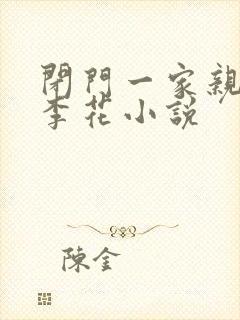 閉門一家親
李花小說
陳金